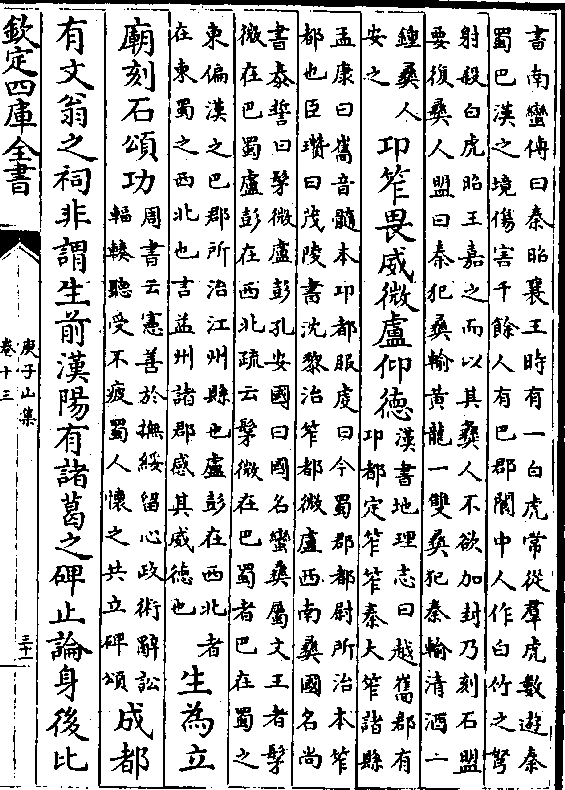 書南蠻傳曰秦昭襄王時有一白虎常從羣虎數遊秦
蜀巴漢之境傷害千餘人有巴郡閬中人作白竹之弩
射殺白虎昭王嘉之而以其彛人不欲加封乃刻石盟
要復彛人盟曰秦犯彛輸黃龍一雙彛犯秦輸清酒一
鍾彛人
安之
卭筰畏威微盧仰德
漢書地理志曰越嶲郡有
卭都定筰筰秦大筰諸縣
孟康曰嶲音髓本卭都服虔曰今蜀郡都尉所治本筰
都也臣瓚曰茂陵書沈黎治筰都微盧西南彛國名尚
書泰誓曰髳微盧彭孔安國曰國名蠻彛屬文王者髳
微在巴蜀盧彭在西北疏云髳微在巴蜀者巴在蜀之
東偏漢之巴郡所治江州縣也盧彭在西北者
在東蜀之西北也言益州諸郡感其威德也
生為立
廟刻石頌功
周書云憲善於撫綏留心政術辭訟
輻輳聽受不疲蜀人懷之共立碑頌
成都
有文翁之祠非謂生前漢陽有諸葛之碑止論身後比
欽定四庫全書
庾子山集
卷十三
三十一